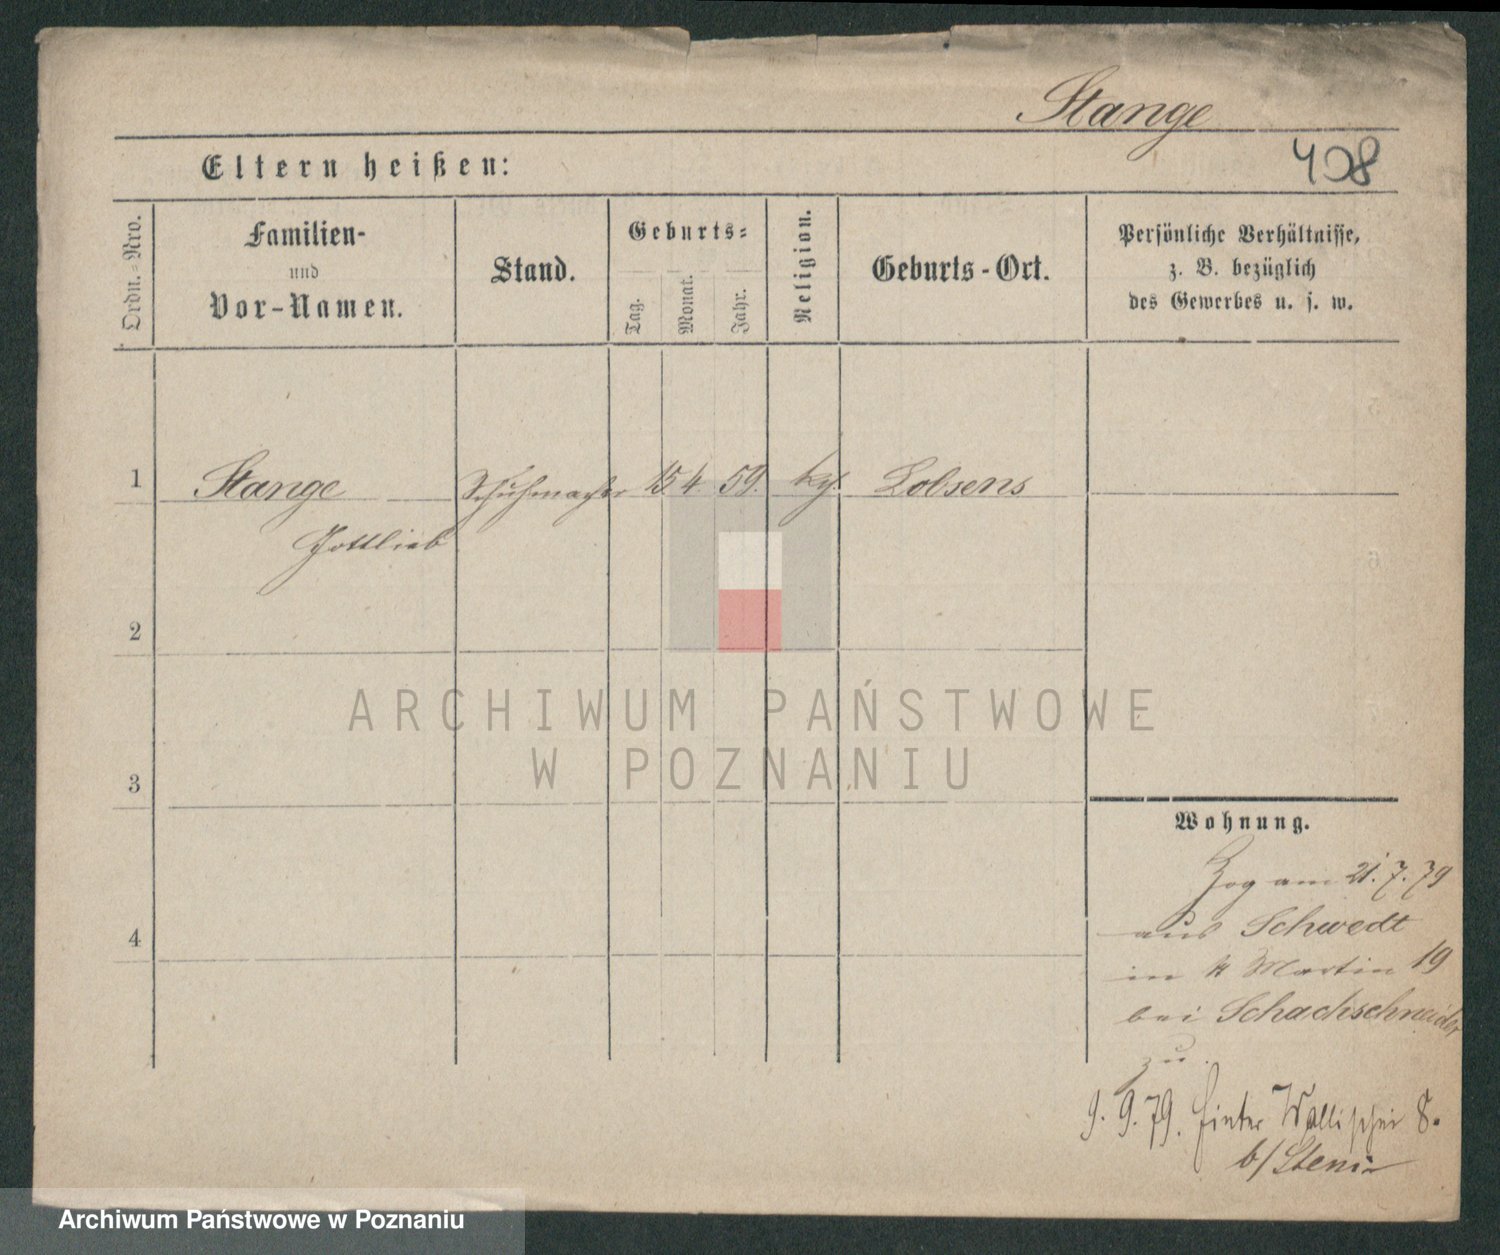 Stange
408
Eltern heißen:
Ordn.=Nro.
Familien-
und
Vor-Namen.
Stand.
Geburts=
Tag.
Monat.
Jahr.
Religion.
Geburts-Ort.
Persönliche Verhältnisse,
z. B. bezüglich
des Gewerbes u. s. w.
1 Stange Schuhmacher 15. 4. 59. Lobsens
Gottlieb
2
3
4
ARCHIWUM PAŃSTWOWE
W POZNANIU
Wohnung.
Zog am 21. 7. 79
aus Schwedt
in St Martin 19
bei Schachschneider
zu.
9. 9. 79. Hinter Wallischei 8.
b/
Archiwum Państwowe w Poznaniu